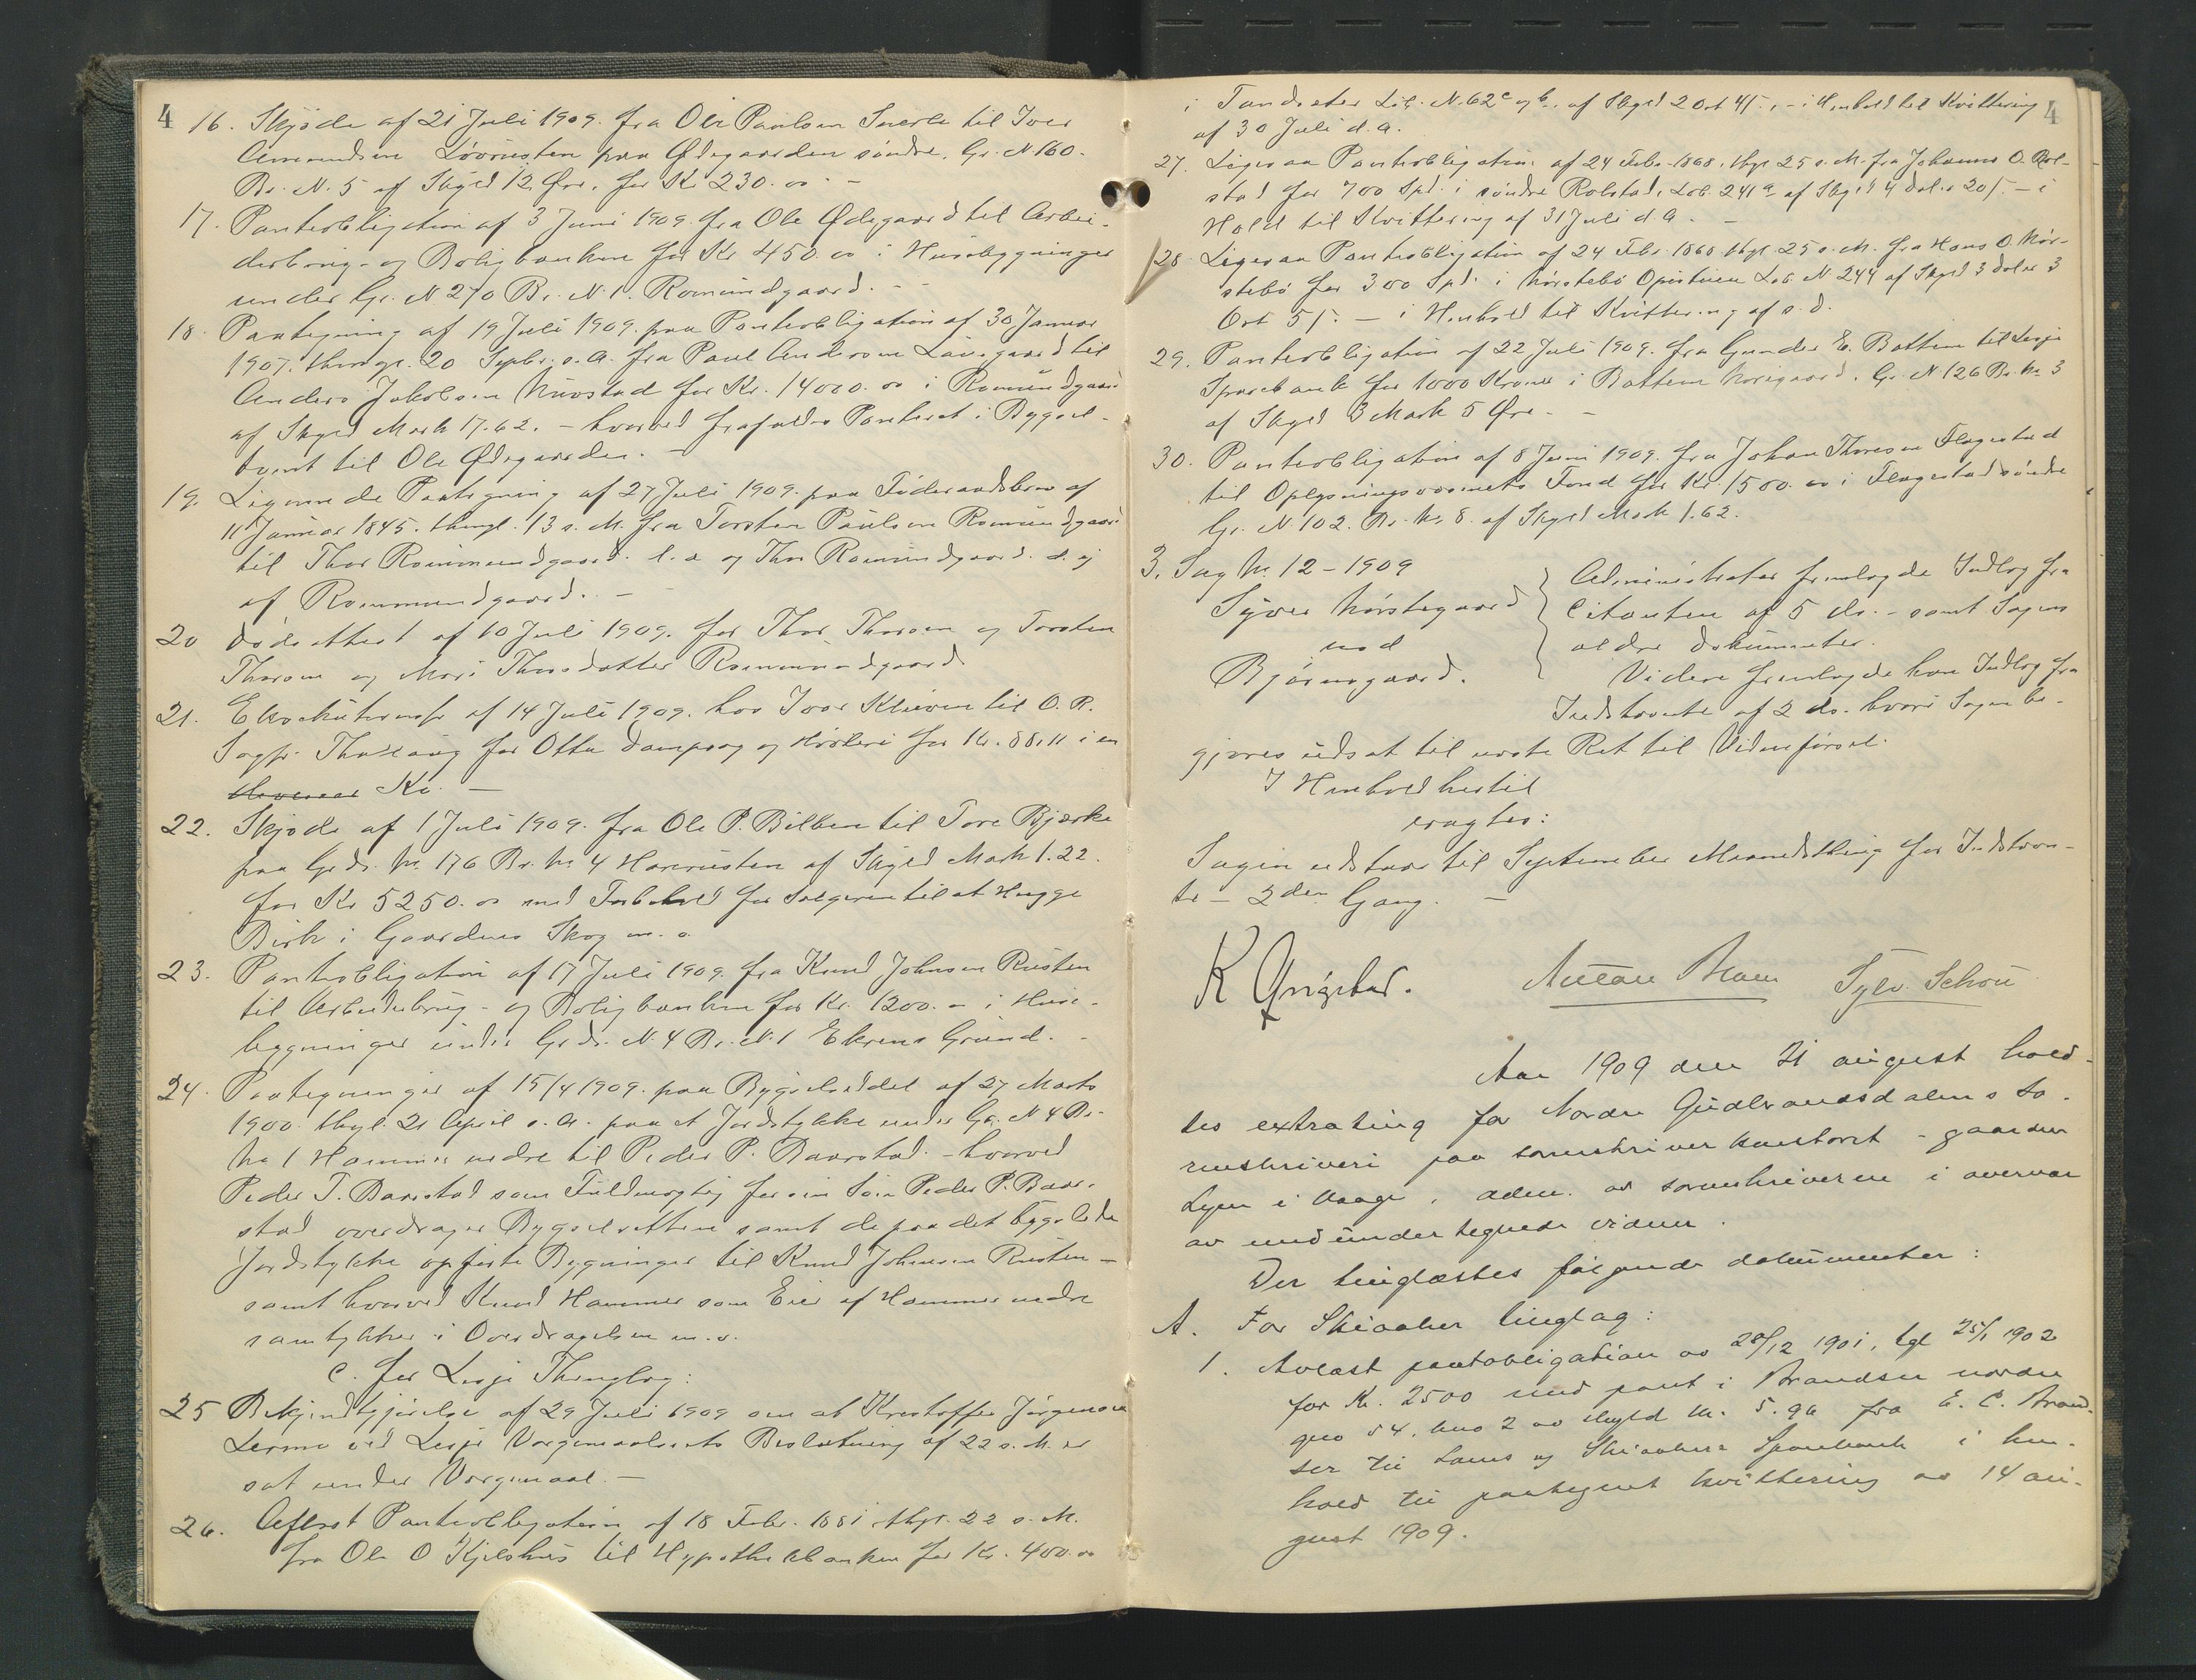 4
16. Skjøde af 21 Juli 1909. fra Ole Paulsen Snerle til Iver
Amundsen Løvrusten paa Ødegaarden søndre, Gr. N. 160.
Br. N. 5 af Skyld 12 Øre. for Kr. 230.00. –
17. Panteobligation af 3 Juni 1909 fra Ole Ødegaard til Arbei-
derbrug- og Boligbanken for Kr 450.00 i Husebygninger
under Gr. N 270 Br. N. 1. Romundgaard. –
18. Paategning af 19 Juli 1909. paa Panteobligation af 30 Januar
1907. thingl. 20 Septbr. s. A. fra Paul Anderson Laurgaard til
Anders Jakobsen Nustad for Kr. 14000.00 i Romundgaard
af Skyld Mark 17.62. – hvorved frafaldes Panteret i Bygsel-
tomt til Ole Ødegaarden. –
19. Lignende Paategning af 27 Juli 1909. paa Føderaadsbrev af
11 Januar 1845. thingl. 13 s. M. fra Torsten Paulsen Romundgaard
til Thor Rommundgaard. l. a og Thor Romundgaard. d. y
af Rommundgaard. –
20 Dødsattest af 10 Juli 1909. for Thor Thorsen og Torsten
Thorsen og Mari Thorsdatter Rommundgaard.
21. Executionsfr. af 14 Juli 1909. hos Iver Kleiven til O. R.
Sagfr. Thallaug for Otta Dampsag og Høvleri for Kr. 88.11 i en
Ko. –
22. Skjøde af 1 Juli 1909. fra Ole P. Bilben til Tore Bjørke
paa Grds. No. 176 Br. No. 4 Haverusten af Skyld Mark 1.22.
for Kr 5250.00 med Forbehold for Sælgeren til at Hugge
Birk i Gaardens Skog m. v.
23. Panteobligation af 17 Juli 1909. fra Knud Johnsen Rusten
til Arbeiderbrug- og Boligbanken for Kr. 1200.00 i Huse-
bygninger under Grds. N. 4 Br. N. 1 Ekrens Grund. –
24. Paategninger af 15/4 1909. paa Bygselseddel af 27 Marts
1900. thgl. 21 April s. A. paa et Jordstykke under Gr. N 4 Br.
No 1 Hammer nedre til Peder P. Baarstad. – hvorved
Peder T. Baarstad som Fuldmægtig for sin Søn Peder P. Baar-
stad overdrager Bygselretten samt de paa det bygslede
Jordstykke opførte Bygninger til Knud Johnsen Rusten –
samt hvorved Knud Hammer som Eier af Hammer nedre
samtykker i Overdragelsen m. v.
C. for Lesje Thinglag:
25 Bekjendtgjørelse af 29 Juli 1909 om at Kristoffer Jørgensen
Lesje Vergemaalsrets Beslutning af 22 s. M. er
sat under Vergemaal. –
26. Aflæst Panteobligation af 18 Febr. 1881 thgl. 22 s. M.
fra Ole O Kjelshus til Hypothekbanken for Kr. 400.00
4
i Tandsæter Løb. N. 62c og b. af Skyld 2 Ort 4/–. – i Henhold til Kvittering
af 30 Juli d. A.
27. Ligesaa Panteobligation af 24 Febr. 1868. thgl 25 s. M. fra Johannes O. Rol-
stad for 700 Spd. i søndre Rolstad, Løb. 241a af Skyld 4 daler 20/. – i
Hold til Kvittering af 31 Juli d. A. –
28. Ligesaa Panteobligation af 24 Febr. 1868 thgl. 25 s. M. fra Hans O. Nør-
stebø for 300 Spd. i Nørstebø Opistuen Løb. N. 244 af Skyld 3 daler 3
Ort 5/. – i Henhold til Kvittering af s. d.
29. Panteobligation af 22 Juli 1909. fra Gunder E. Bottem til Lesje
Sparebank for 1000 Kroner i Bottem Norigaard. Gr. N 126 Br. No 3
af Skyld 3 Mark 5 Øre. –
30. Panteobligation af 8 Juni 1909. fra Johan Thoresen Flagestad
til Oplysningsvæsenets Fond for Kr. 1500.00 i Flagestad søndre
Gr. N. 102. Br. No. 8. af Skyld Mark 1.62.
3. Sag No. 12 – 1909
Syver Nørstegaard
mod
Bjørnsgaard.
Administrator fremlagde Indlæg fra
Citanten af 5 ds. – samt Sagens
ældre Dokumenter.
Videre fremlagde han Indlæg fra
Indstevnte af 2 ds. hvori Sagen be-
gjæres udsat til næste Ret til Vidneførsel.
I Henhold hertil
eragtes:
Sagen udstaar til September Maanedsthing for Indstevn-
te – 2den Gang. –
K Ungstad. Anton Moen Sylv. Schou
Aar 1909 den 21 august hold-
tes extrating for Nordre Gudbrandsdalens so-
renskriveri paa sorenskriverkontoret – gaarden
i Vaage, adm. av sorenskriveren i overvær
av medundertegnede vidner.
Der tinglæstes følgende dokumenter:
A. For Skiaaker tinglag:
1. Avlæst pantobligation av 28/12 1901, tgl 25/1 1902
for Kr. 2500 med pant i Brandser nordre
gno 54, bno 2 av skyld M. 5.96 fra E. C. Brand-
ser til Loms og Skiaakers Sparebank i hen-
hold til paategnet kvittering av 14 au-
gust 1909.